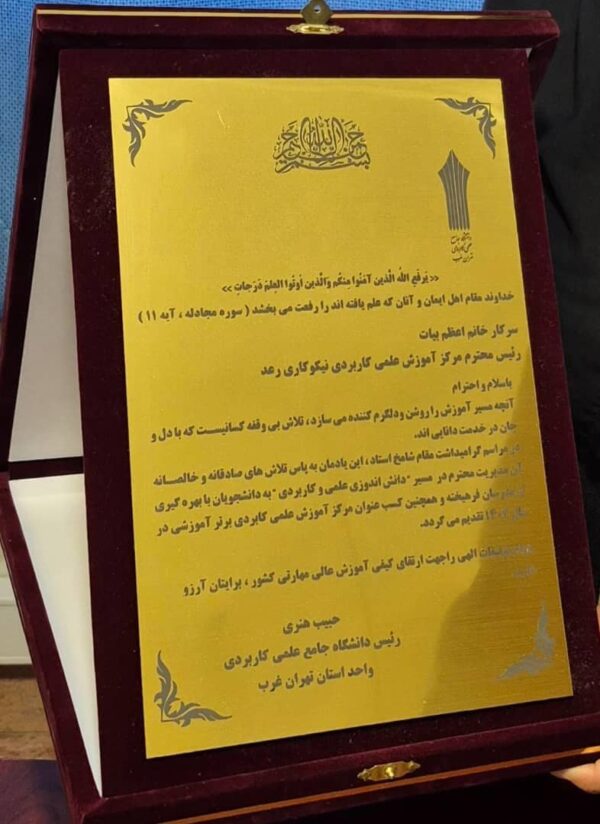 بسم الله الرحمن الرحیم
دانشگاه جامع
علمی کاربردی
تهران غرب
<< یَرفَعِ الله الَّذینَ آمَنُوا مِنکُم وَالَّذینَ اُوتُوا العِلمَ دَرَجاتٍ >>
خداوند مقام اهل ایمان و آنان که علم یافته اند را رفعت می بخشد ( سوره مجادله ، آیه ۱۱ )
سرکار خانم اعظم بیات
رئیس محترم مرکز آموزش علمی کاربردی نیکوکاری رعد
باسلام و احترام
آنچه مسیر آموزش را روشن ودلگرم کننده می سازد ، تلاش بی وقفه کسانیست که با دل و
جان در خدمت دانایی اند.
در مراسم گرامیداشت مقام شامخ استاد ، این یادمان به پاس تلاش های صادقانه و خالصانه
آن مدیریت محترم در مسیر "دانش اندوزی علمی و کاربردی " به دانشجویان با بهره گیری
فرهیخته و همچنین کسب عنوان مرکز آموزش علمی کابردی برتر آموزشی در
تقدیم می گردد.
الهی راجهت ارتقای کیفی آموزش عالی مهارتی کشور ، برایتان آرزو
حبیب هنری
رئیس دانشگاه جامع علمی کاربردی
واحد استان تهران غرب